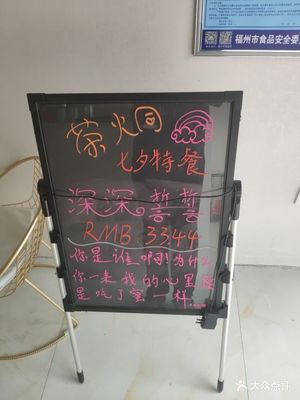 福州市食品安全委
茶火园
七夕特餐
深深誓誓
RMB:3344
你是谁啊!为什么
你一来我的心里面
是吃了蜜一样......
大众点评